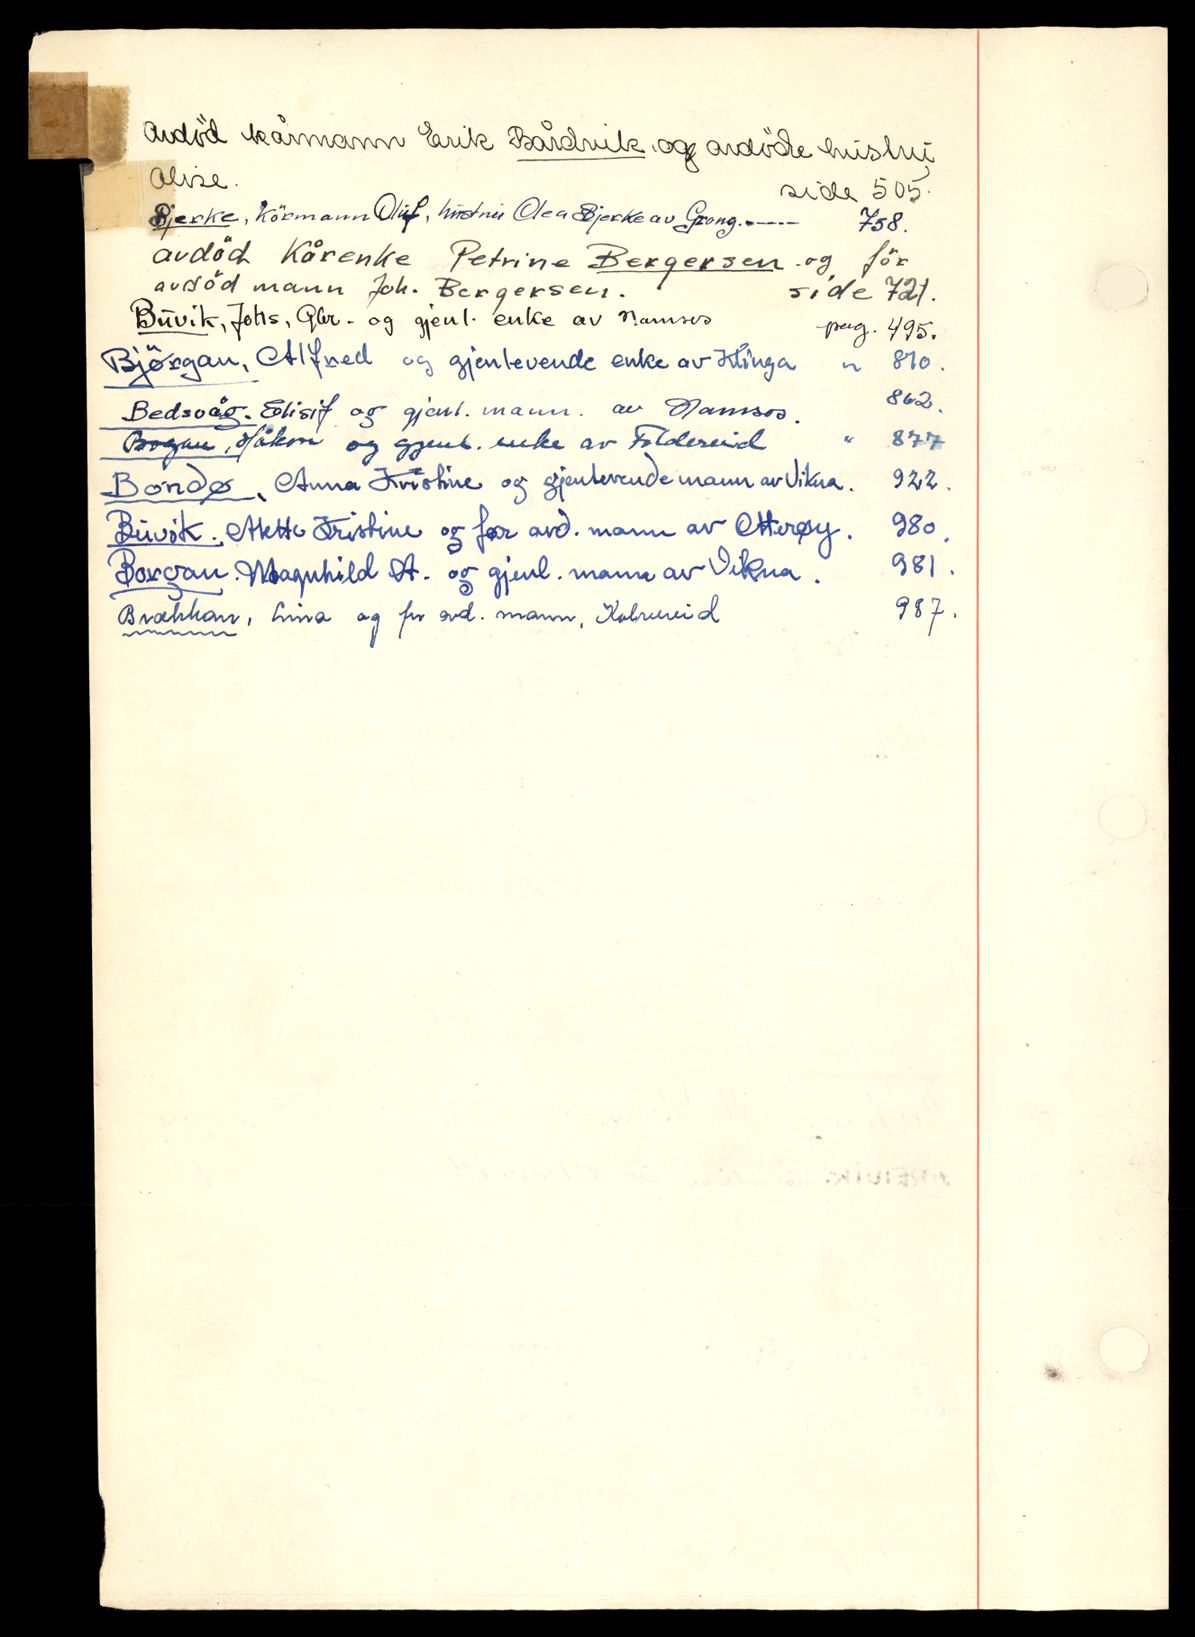 Avdöd kårmann Erik Bårdvik og avdöde hustru
Alise. side 505.
Bjerke, Kårmann Oluf, hustru Olea Bjerke av Grong.---- 758.
avdöd Kårenke Petrine Bergersen og för
avdöd mann Joh. Bergersen. side 721.
Buvik, Johs, Gbr. og gjenl. enke av Namsos pag. 495.
Björgan, Alfred og gjenlevende enke av Klinga " 810.
Bedsvåg, Elisif og gjenl. mann. av Namsos. 862.
Brogan, Håkon og gjenl. enke av Foldereid " 877
Bondø, Anna Kristine og gjenlevende mann av Vikna. 922.
Buvik. Mette Kristine og før avd. mann av Otterøy. 980.
Borgan. Magnhild A. og gjenl. mann av Vikna. 981.
Brækkan, Lina og før avd. mann, Kolvereid 987.